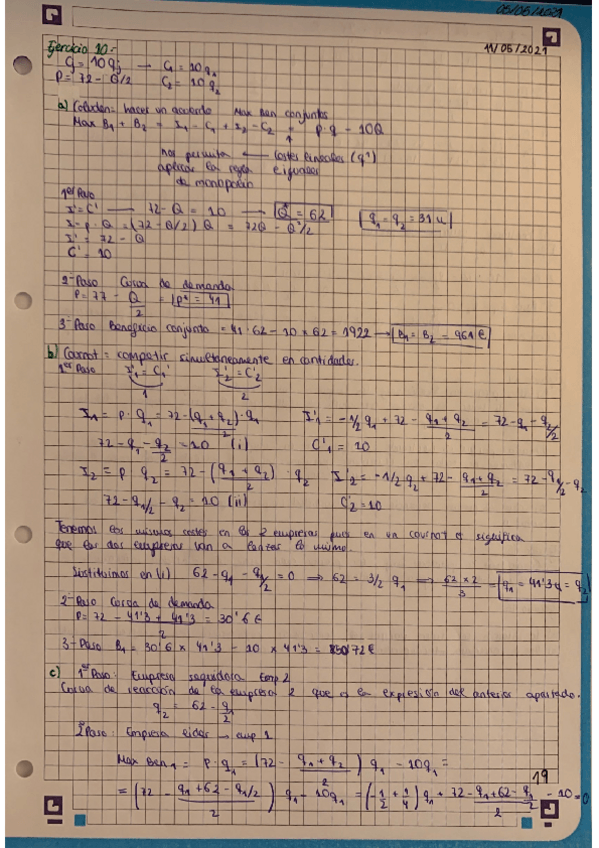 05/05/2021
11/05/2021
Ejercicio 10:-
Cj = 10qj → C1 = 10q1
P = 72 - Q/2 C2 = 10q2
a) Coluden: hacer un acuerdo Max Ben conjuntos
Max B1 + B2 = I1 - C1 + I2 - C2 = p·q - 10Q
nos permite ← Costes lineales (q1)
aplicar la regla e iguales
de monopolio
1er Paso
I' = C' → 72 - Q = 10 → Q = 62 q1 = q2 = 31 u
I = p·Q = (72 - Q/2) Q = 72Q - Q²/2
I' = 72 - Q
C' = 10
2º Paso Curva de demanda
P = 77 - Q/2 = P* = 41
3º Paso Beneficio conjunto = 41·62 - 10 × 62 = 1922 → B1 = B2 = 961 €
b) Cournot = competir simultáneamente en cantidades.
1er Paso I'1 = C1' I'2 = C'2
1 2
I1 = p·q1 = 72 - (q1 + q2)/2 · q1 I'1 = -1/2 q1 + 72 - (q1 + q2)/2 = 72 - q1 - q2/2
72 - q1 - q2/2 = 10 (i) C'1 = 10
I2 = p q2 = 72 - (q1 + q2)/2 · q2 I'2 = -1/2 q2 + 72 - (q1 + q2)/2 = 72 - q1/2 - q2
72 - q1/2 - q2 = 10 (ii) C'2 = 10
Tenemos los mismos costes en las 2 empresas pues en un cournot significa
que las dos empresas van a lanzar lo mismo.
Sustituimos en (i) 62 - q1 - q1/2 = 0 ⇒ 62 = 3/2 q1 ⇒ 62 × 2/3 = q1 = 41'3 u = q2
2º Paso Curva de demanda
P = 72 - (41'3 + 41'3)/2 = 30'6 €
3º Paso B1 = 30'6 × 41'3 - 10 × 41'3 = 850'72 €
c) 1er Paso: Empresa seguidora Emp 2
Curva de reacción de la empresa 2 que es la expresión del anterior apartado.
q2 = 62 - q1/2
2º Paso: Empresa líder → emp 1
Max Ben1 = p·q1 = (72 - (q1 + q2)/2) q1 - 10q1 =
= (72 - (q1 + 62 - q1/2)/2) q1 - 10q1 = (-1/2 + 1/4) q1 + 72 - (q1 + 62 - q1/2)/2 - 10 = 0
19